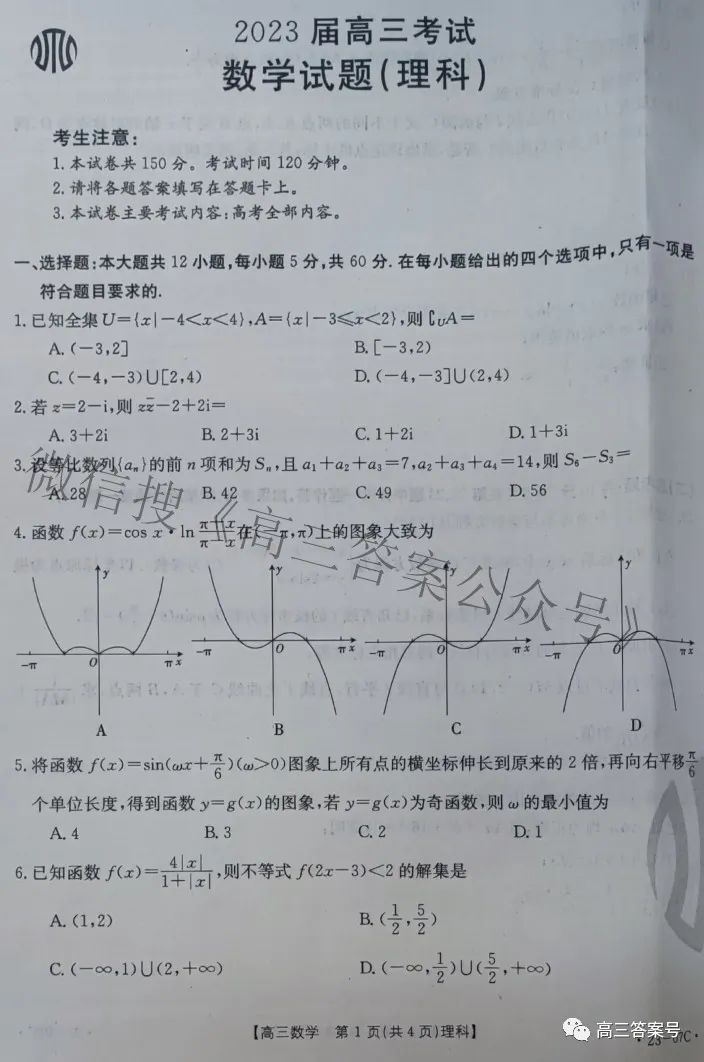 2023届高三考试
数学试题(理科)
考生注意:
1.本试卷共150分。考试时间120分钟。
2.请将各题答案填写在答题卡上。
3.本试卷主要考试内容:高考全部内容。
一、选择题:本大题共12小题,每小题5分,共60分.在每小题给出的四个选项中,只有一项是
符合题目要求的.
1.已知全集U={x|-4<x<4},A={x|-3≤x<2},则∁UA=
A.(-3,2] B.[-3,2)
C.(-4,-3)∪[2,4) D.(-4,-3]∪(2,4)
2.若z=2-i,则zz̄-2+2i=
A.3+2i B.2+3i C.1+2i D.1+3i
3.设等比数列{aₙ}的前n项和为Sₙ,且a₁+a₂+a₃=7,a₂+a₃+a₄=14,则S₆-S₃=
A.28 B.42 C.49 D.56
4.函数f(x)=cos x·ln (π+x)/(π-x)在(-π,π)上的图象大致为
y y y y
-π O π x -π O π x -π O π x -π O π x
A B C D
5.将函数f(x)=sin(ωx+π/6)(ω>0)图象上所有点的横坐标伸长到原来的2倍,再向右平移π/6
个单位长度,得到函数y=g(x)的图象,若y=g(x)为奇函数,则ω的最小值为
A.4 B.3 C.2 D.1
6.已知函数f(x)=4|x|/(1+|x|),则不等式f(2x-3)<2的解集是
A.(1,2) B.(1/2,5/2)
C.(-∞,1)∪(2,+∞) D.(-∞,1/2)∪(5/2,+∞)
【高三数学 第1页(共4页)理科】
·23-07C·
微信搜《高三答案公众号》
高三答案号